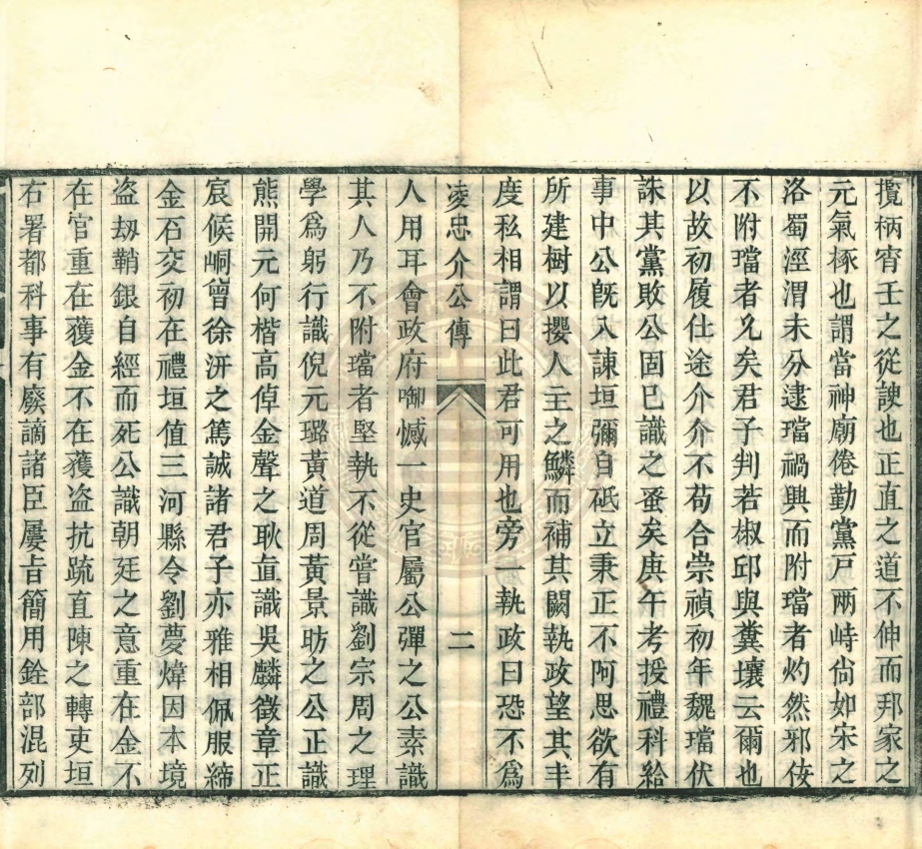 攬柄宵壬之從諛也正直之道不伸而邦家之
元氣椓也謂當神廟倦勤黨戸兩峙尙如宋之
洛蜀涇渭未分逮璫禍興而附璫者灼然邪佞
不附璫者凡矣君子判若椒邱與糞壤云爾也
以故初履仕途介介不苟合崇禎初年魏璫伏
誅其黨敗公固已識之蚤矣庚午考授禮科給
事中公旣入諫垣彌自砥立秉正不阿思欲有
所建樹以攖人主之鱗而補其闕執政望其丰
度私相謂曰此君可用也旁一執政曰恐不爲
凌忠介公傳
二
人用耳會政府啣憾一史官屬公彈之公素識
其人乃不附璫者堅執不從嘗識劉宗周之理
學爲躬行識倪元璐黃道周黃景昉之公正識
熊開元何楷高倬金聲之耿直識吳麟徵章正
宸候峒曾徐汧之篤誠諸君子亦雅相佩服締
金石交初在禮垣值三河縣令劉夢煒因本境
盗刼鞘銀自經而死公識朝廷之意重在金不
在官重在獲金不在獲盗抗疏直陳之轉吏垣
右署都科事有廢謫諸臣屢旨簡用銓部混列